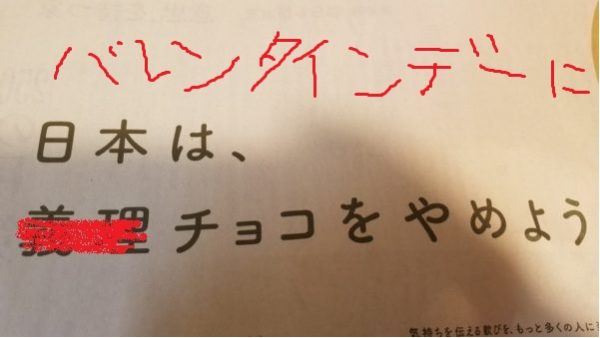 バレンタインデーに
日本は、
義理チョコをやめよう
気持ちを伝える歓びを、もっと多くの人に